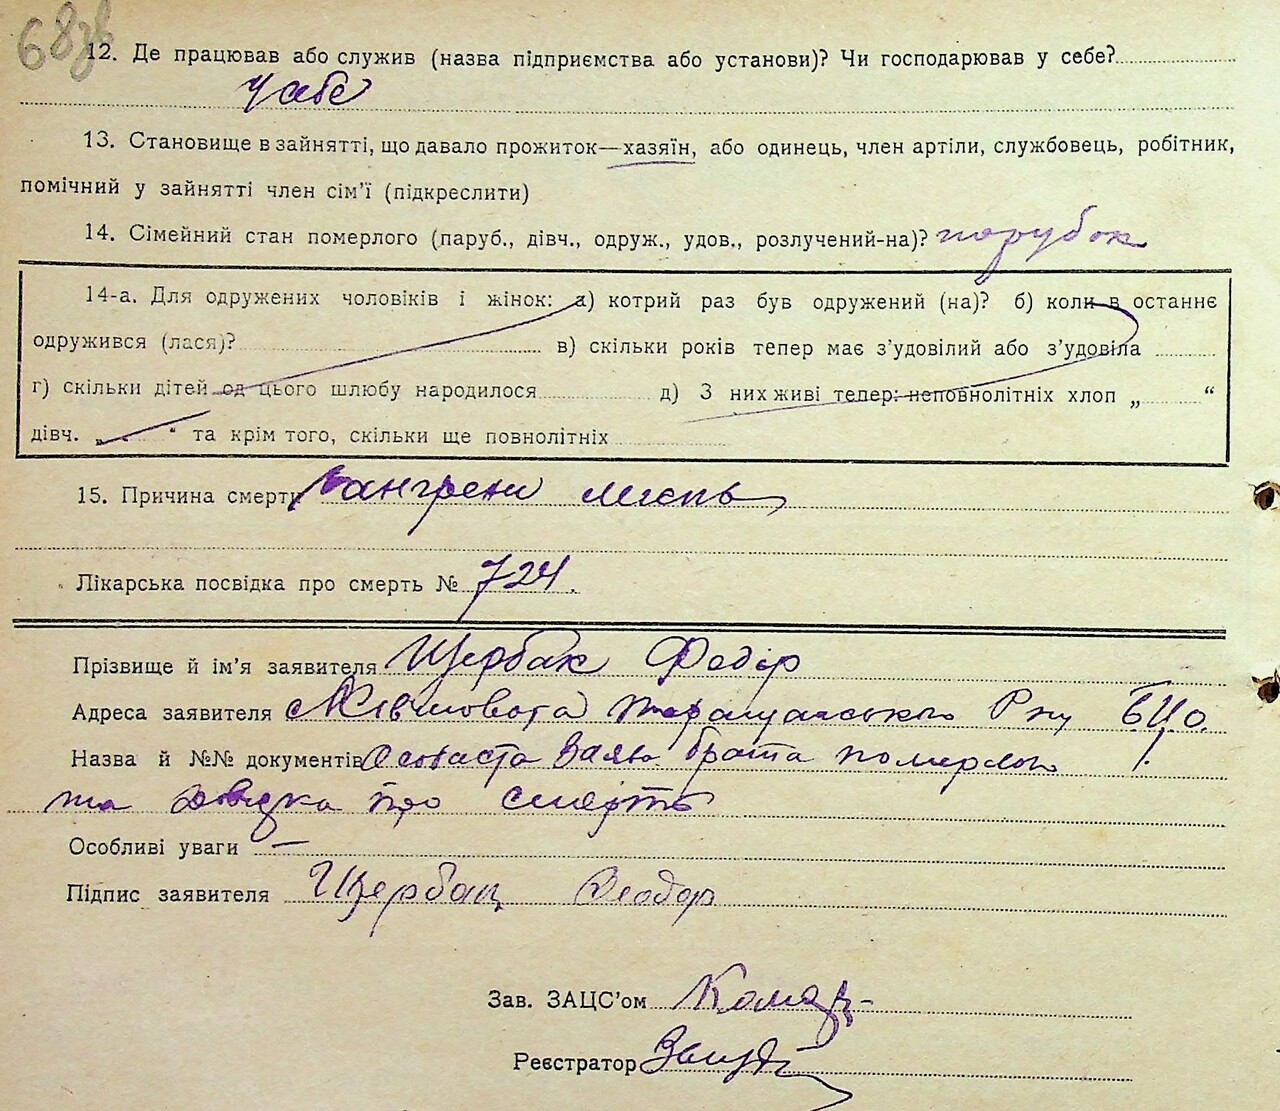 68зв
12. Де працював або служив (назва підприємства або установи)? Чи господарював у себе?
У себе
13. Становище в зайнятті, що давало прожиток—хазяїн, або одинець, член артіли, службовець, робітник,
помічний у зайнятті член сім’ї (підкреслити)
14. Сімейний стан померлого (паруб., дівч., одруж., удов., розлучений-на)? парубок
14-а. Для одружених чоловіків і жінок: а) котрий раз був одружений (на)? б) коли в останнє
одружився (лася)? в) скільки років тепер має з’удовілий або з’удовіла
г) скільки дітей од цього шлюбу народилося д) З них живі тепер: неповнолітніх хлоп „ “
дівч. „ “ та крім того, скільки ще повнолітніх
15. Причина смерти Гангрена легень
Лікарська посвідка про смерть № 724.
Прізвище й ім’я заявителя Щербак Федір
Адреса заявителя Таращанського Р-ну БЦо.
Назва й №№ документів Особаста заява брата померлого
та довідка про смерть
Особливі уваги —
Підпис заявителя Щербак Феодор
Зав. ЗАЦС’ом
Реєстратор